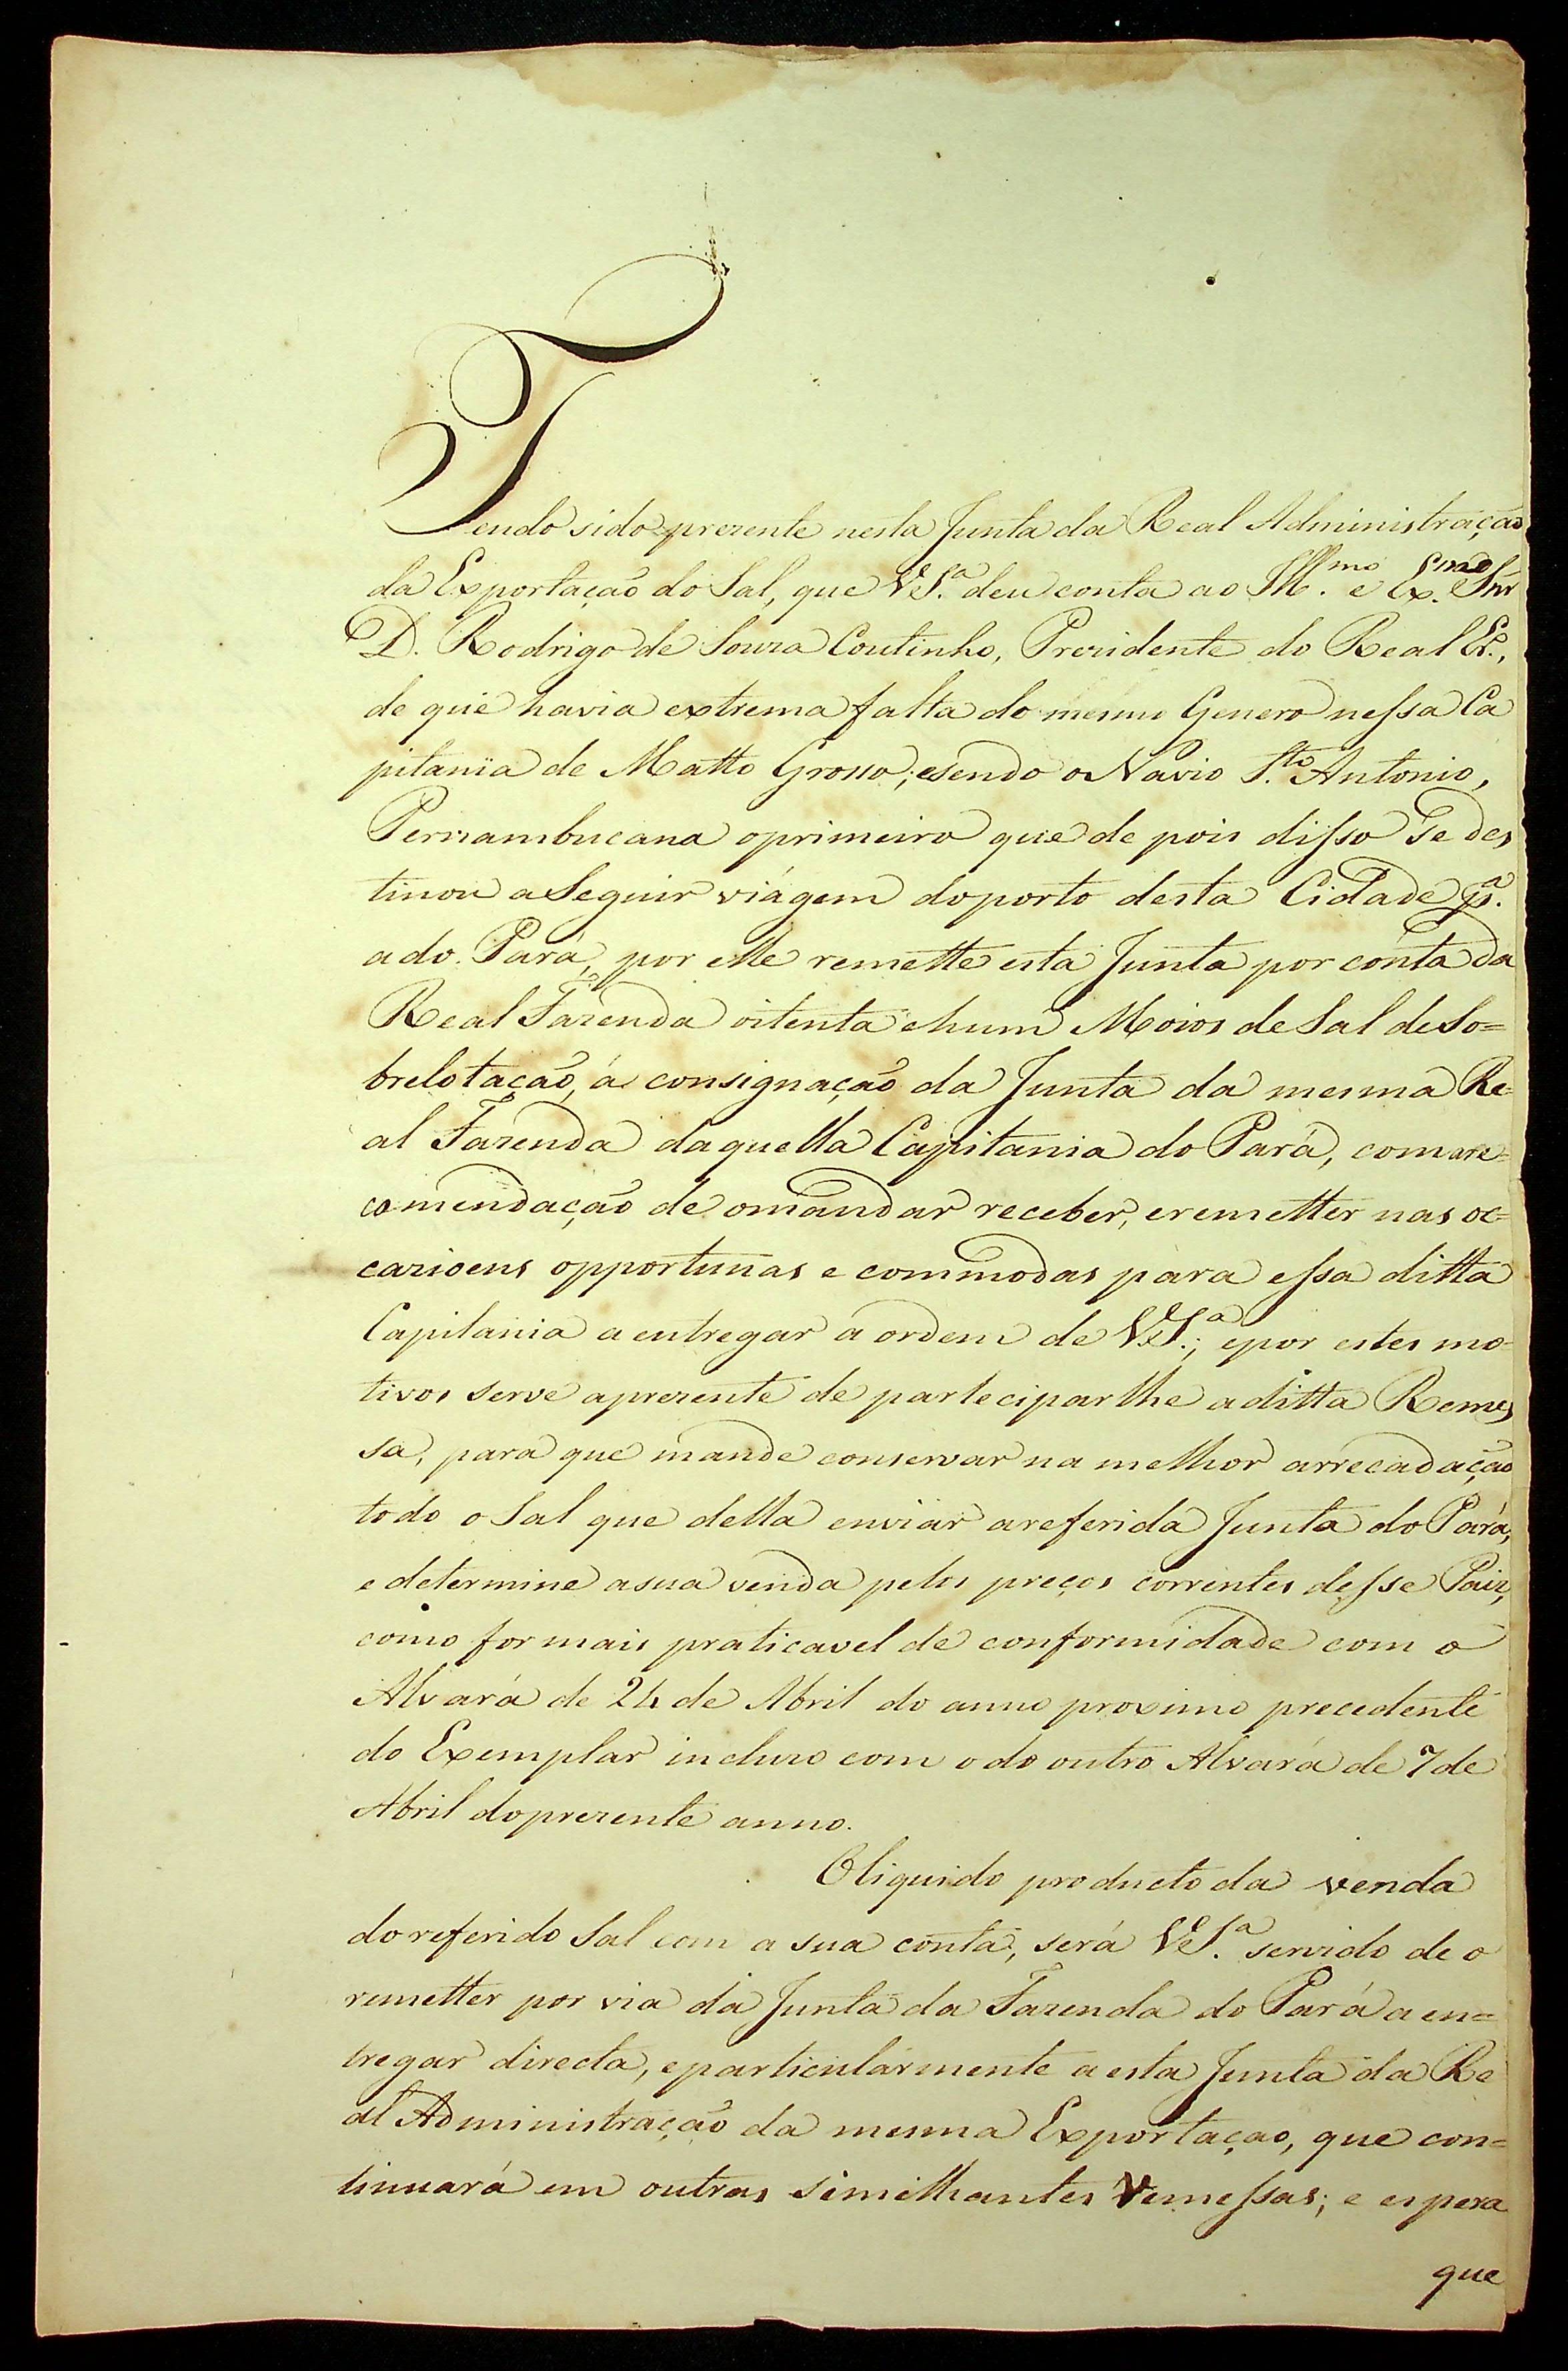 Tendo sido prezente nesta Junta da Real Administração
da Exportação do Sal, que VS.ª deu conta ao Ill.mo e Ex.mo Snr
D. Rodrigo de Souza Coutinho, Prezidente do Real Er.,
de que havia extrema falta do mesmo Genero nessa Ca
pitania de Matto Grosso; esendo o Navio S.to Antonio,
Pernambucana oprimeiro que de pois disso se des
tinou aSeguir viágem doporto desta Cidade p.ª
ado Pará, por elle remette esta Junta por conta da
Real Fazenda oitenta ehum Moios de Sal deSo=
brelotação, á consignação da Junta da mesma Re=
al Fazenda daquella Capitania do Pará, comare=
comendação de omandar receber, eremetter nas oc=
cazioens opportunas e commodas para essa ditta
Capitania a entregar á ordem de VS.ª; epor estes mo=
tivos serve aprezente de partecipar lhe aditta Remes
sa, para que mande conservar na melhor arrecadação
todo o Sal que della enviar areferida Junta do Pará,
e determine asua venda pelos preços correntes desse Paiz,
como for mais praticavel de conformidade com o
Alvará de 24 de Abril do anno proximo precedente
do Exemplar incluzo com odo outro Alvará de 7 de
Abril doprezente anno.
Oliquido producto da venda
doreferido Sal com a sua conta, será VS.ª servido de o
remetter por via da Junta da Fazenda do Pará a en=
tregar directa, eparticularmente a esta Junta da Re
al Administração da mesma Exportaçao, que con=
tinuará em outras similhantes Remessas; e espera
que